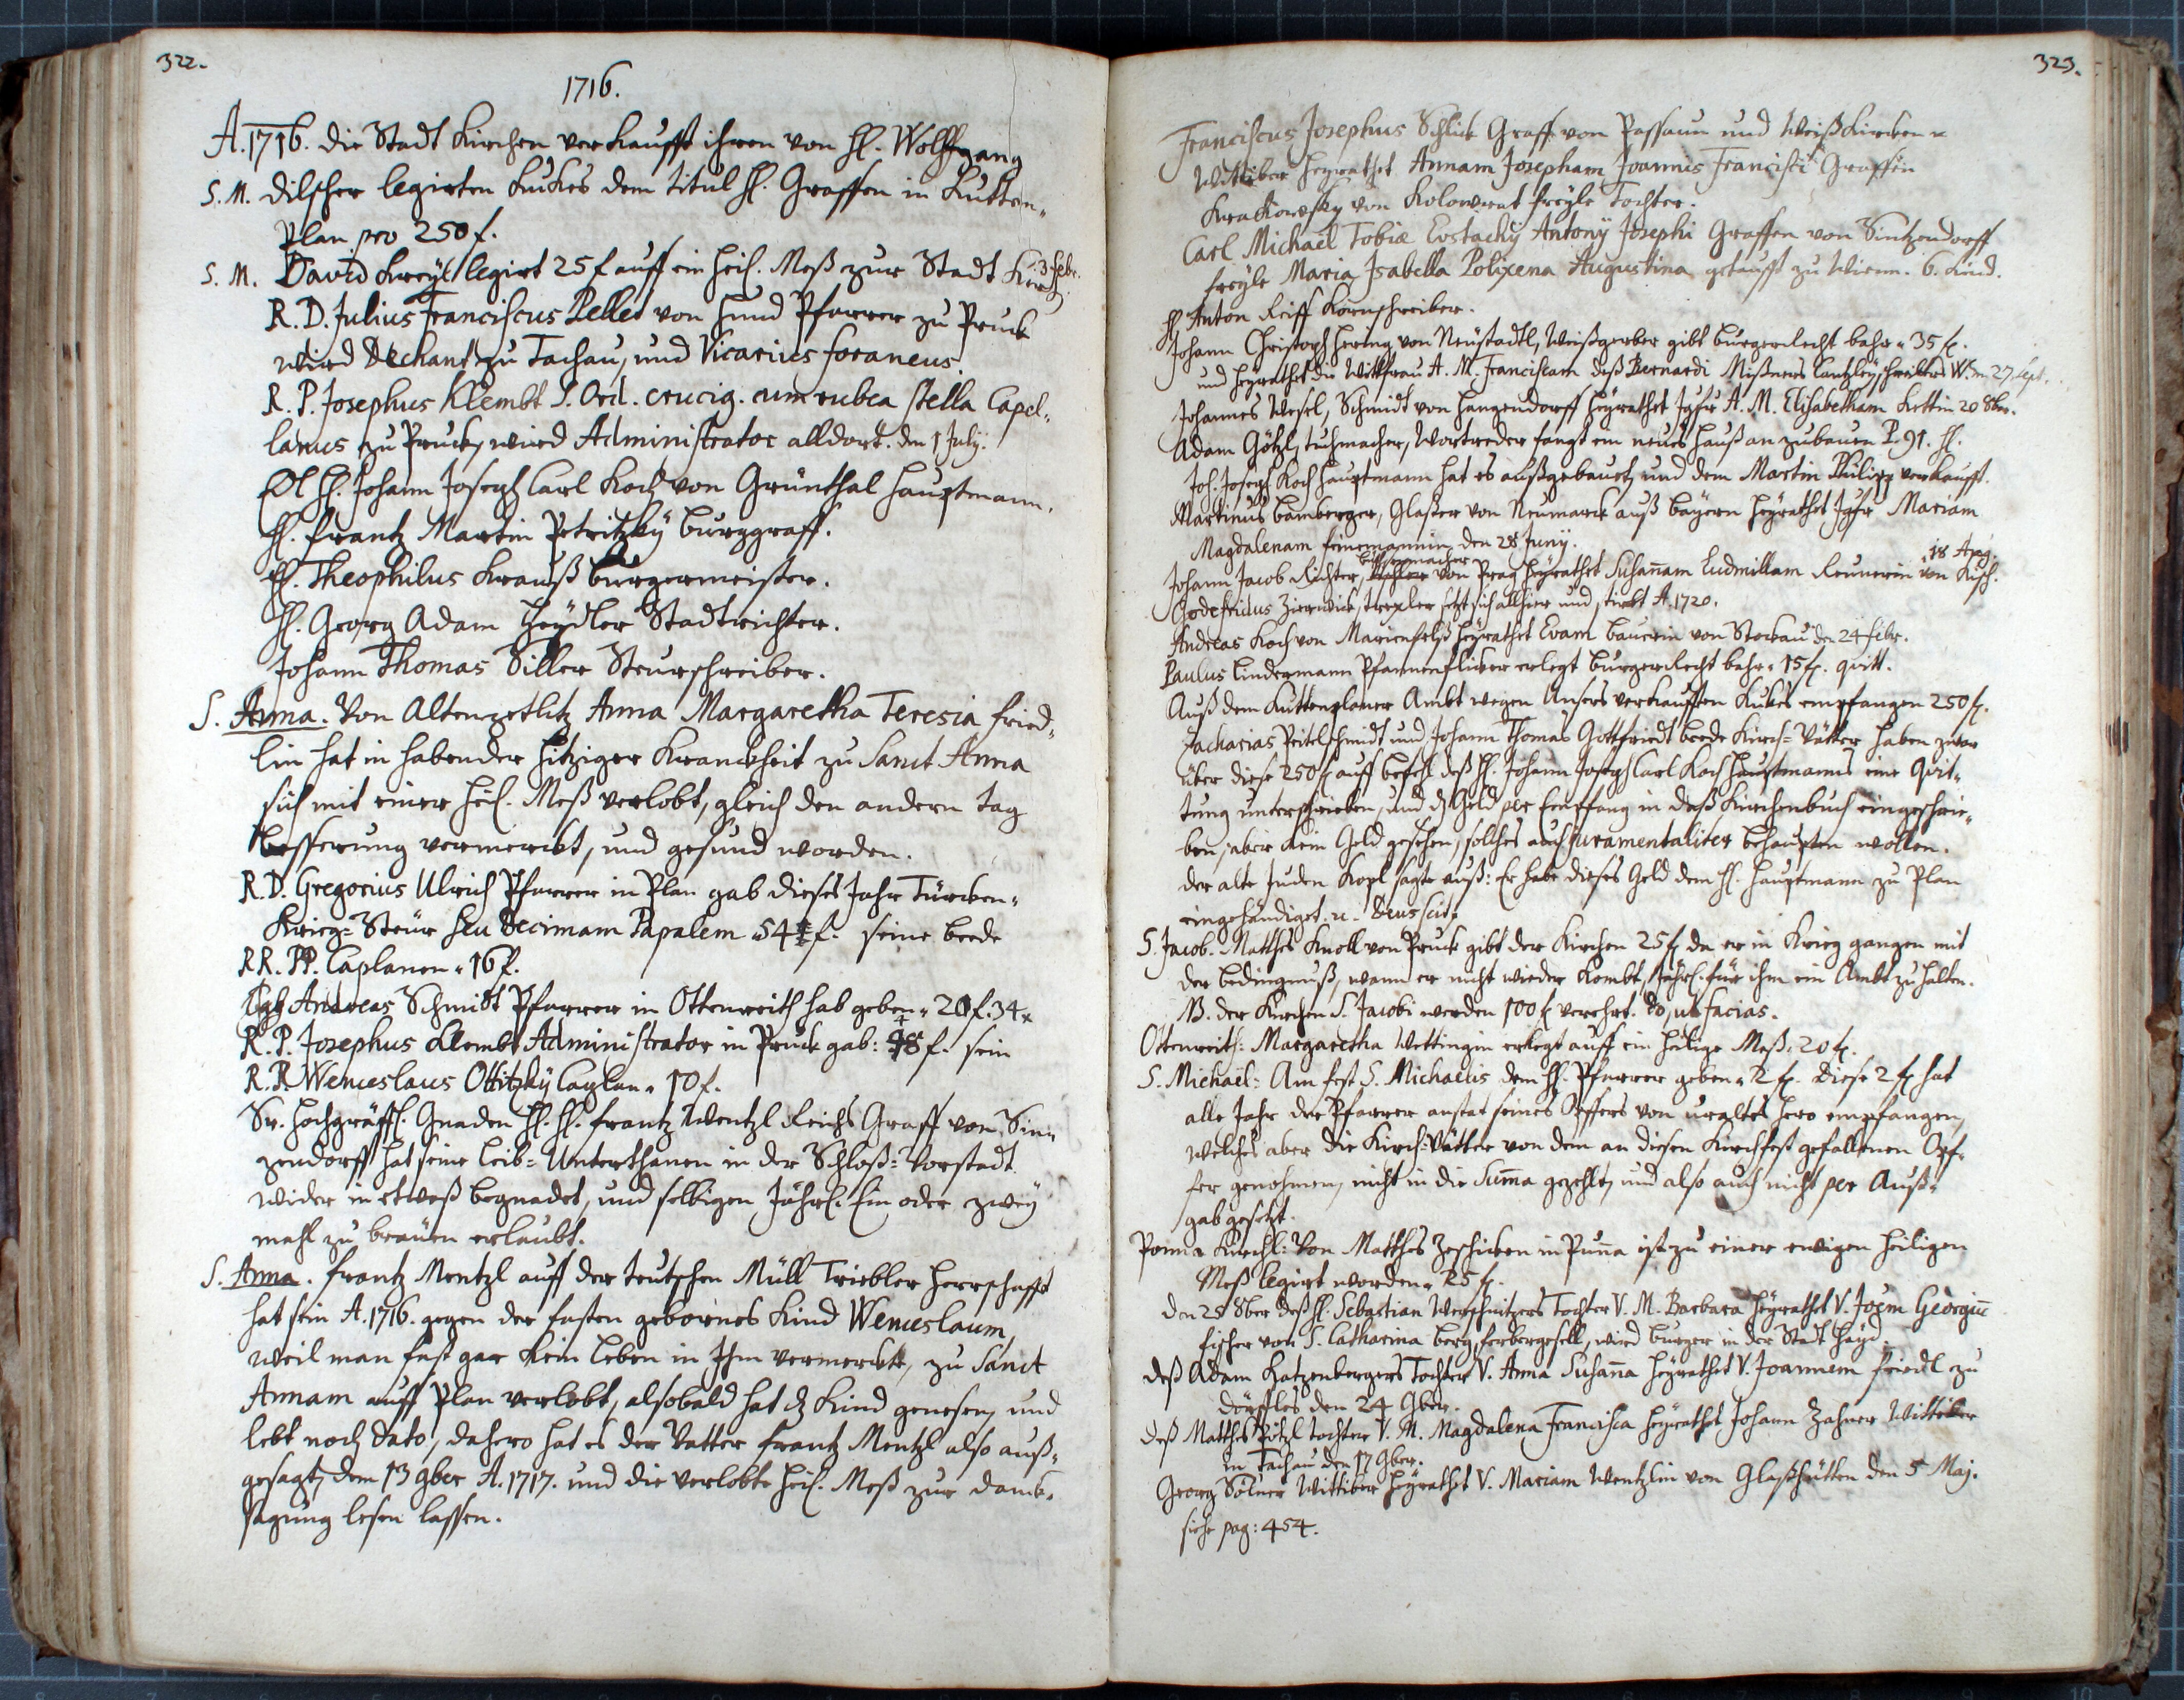 322.
1716.
A. 1716. die Stadt Kirchen verkaufft ihren von H. Wolffgang
S. M. Dilscher legirten Kukes dem titul H. Graffen in Kutten-
Plan pro 250 f.
S. M. David Kreyl legirt 25 f auff ein heil. Meß zur Stadt Kirch 3 febr.
R. D. Julius Franciscus Peller von Hund Pfarrer zu Pruck
wird Dechant zu Tachau, und Vicarius foraneus.
R. P. Josephus Klembt S. Ord. crucig. cum rubea stella Capel-
lanus zu Pruck, wird Administrator alldort. den 1 July.
H. Johann Joseph Carl Koch von Grünthal Hauptmann.
H. Frantz Martin Petritzky Burggraff.
H. Theophilus Krauß Burgermeister.
H. Georg Adam Heydler Stadtrichter.
Johann Thomas Siller Steurschreiber.
S. Anna. Von Altenzetlitz Anna Margaretha Teresia Fried-
lin hat in habender hitziger Kranckheit zu Sanct Anna
sich mit einer heil. Meß verlobt, gleich den andern Tag
besserung vermerckt, und gesund worden.
R. D. Gregorius Ulrich Pfarrer in Plan gab dieses Jahr Türcken-
Krieg-Steür seu Decimam Papalem 54 f. seine beede
RR. PP. Caplanen 16 f.
Andreas Schmidt Pfarrer in Ottenreith hab geben 20 f. 34 x
R. P. Josephus Klembt Administrator in Pruck gab: 18 f. sein
R. P. Wenceslaus Ottitzky Caplan 10 f.
Sr. Hochgräffl. Gnaden H. H. Frantz Wentzl Reichs Graff von Sin-
zendorff hat seine Leib-Unterthanen in der Schloß-Vorstadt
wider in etwaß begnadet, und selbigen Jährl. Ein oder zwey
mahl zu breuen erlaubt.
S. Anna. Frantz Mentzl auff der teutschen Müll Triebler Herrschafft
hat sein A. 1716. gegen der fasten gebornes Kind Wenceslaum,
weil man fast gar kein leben in Ihm vermerckte, zu Sanct
Annam auff Plan verlobt, alsobald hat dz Kind genesen, und
lebt noch dato, dahero hat es der Vatter Frantz Mentzl also auß-
gesagt, dem 13 9ber A. 1717. und die verlobte heil. Meß zur danck-
sagung lesen lassen.
323.
Franciscus Josephus Schlick Graff von Passaun und Weißkirchen
Wittiber heyrathet Annam Josepham Joannis Francisci Graffen
Krakowsky von Kolowrat freyle Tochter.
Carl Michael Tobiæ Eustachy Antony Josephi Graffen von Sintzendorff
freyle Maria Isabella Polixena Augustina getaufft zu Wienn. 6. Kind.
H. Anton Reiff Kornschreiber.
Johann Christoph Hering von Neustadtl, Weißgerber gibt burgerrecht bahr 35 f.
und heyrathet die Wittfrau A. M. Franciscam deß Bernardi Mißners Cantzleyschreibers W. 27 Sept.
Johannes Wesel, Schmidt von Hangendorff heyrathet Jgfr A. M. Elisabetham Kettin 20 8br.
Adam Götzl, tuchmacher, Wortreder fangt ein neues Hauß an zubauen P. 91. H.
Joh. Joseph Koch Hauptmann hat es außgebauet, und dem Martin Philipp verkaufft.
Martinus Bamberger, Glaßer von Neumarck auß Bayern heyrathet Jgfr Mariam
Magdalenam Feinemannin den 28 Juny.
Johann Jacob Richter, Büchsenmacher von Prag heyrathet Susannam Ludmillam Reunerin von Kusch. 18 Aprg.
Godefridus Zierwick, Drexler setzt sich allhier und stirbt A. 1720.
Andreas Koch von Marienfelß heyrathet Evam Bauerin von Stockau den 24 febr.
Paulus Lindermann Pfannenflicker erlegt burgerrecht bahr 15 f. quitt.
Auß dem Kuttenplaner Ambt wegen Ansers verkaufften Kukes empfangen 250 f.
Zacharias Peitelschmidt und Johann Thomas Gottfriedt beede Kirch-Vätter haben zwar
über diese 250 f auff befehl deß H. Johann Joseph Carl Koch Hauptmanns eine Quit-
tung unterschrieben, und dz Geld per Empfang in daß Kirchenbuch eingeschrie-
ben, aber kein Geld gesehen, solches auch juramentaliter behaupten wollen.
der alte Juden Kopl sagte auß: Er habe dieses Geld dem H. Hauptmann zu Plan
eingehändiget. Deus scit.
S. Jacob. Matthes Knoll von Pruck gibt der Kirchen 25 f da er in Krieg gangen mit
der bedingnuß, wann er nicht wieder kombt, Jährl. für ihm ein Ambt zu halten.
NB. der Kirchen S. Jacobi werden 100 f verehrt. do, ut facias.
Ottenreith: Margaretha Wettingin erlegt auff ein heilige Meß: 20 f.
S. Michaël: Am fest S. Michaelis dem H. Pfarrer geben 2 f. diese 2 f hat
alle Jahr der Pfarrer anstat seines Opffers von uraltes hero empfangen,
welches aber die Kirch-Vätter von dem an diesen Kirchfest gefallenen Opf-
fer genohmen, nicht in die Summa gezehlt, und also auch nicht per Auß-
gab gesetzt.
Ponna Kirchl: Von Matthes Zeschicken in Punna ist zu einer ewigen heiligen
Meß legirt worden 25 f.
Den 25 8ber deß H. Sebastian Werschnitzers Tochter V. M. Barbara heyrathet V. Joem Georgiu
Fischer von S. Catharina berg, ferbergesell, wird burger in der Stadt Hayd.
deß Adam Katzenbergers Tochter V. Anna Susanna heyrathet V. Joannem Friedl zu
Dörffles den 24 9ber.
deß Matthes Pötzl tochter V. M. Magdalena Francisca heyrathet Johann Zahner Wittiber
in Tachau den 17 9ber.
Georg Sölner Wittiber heyrathet V. Mariam Wentzlin von Glaßhütten den 5 Maj.
siehe pag: 454.